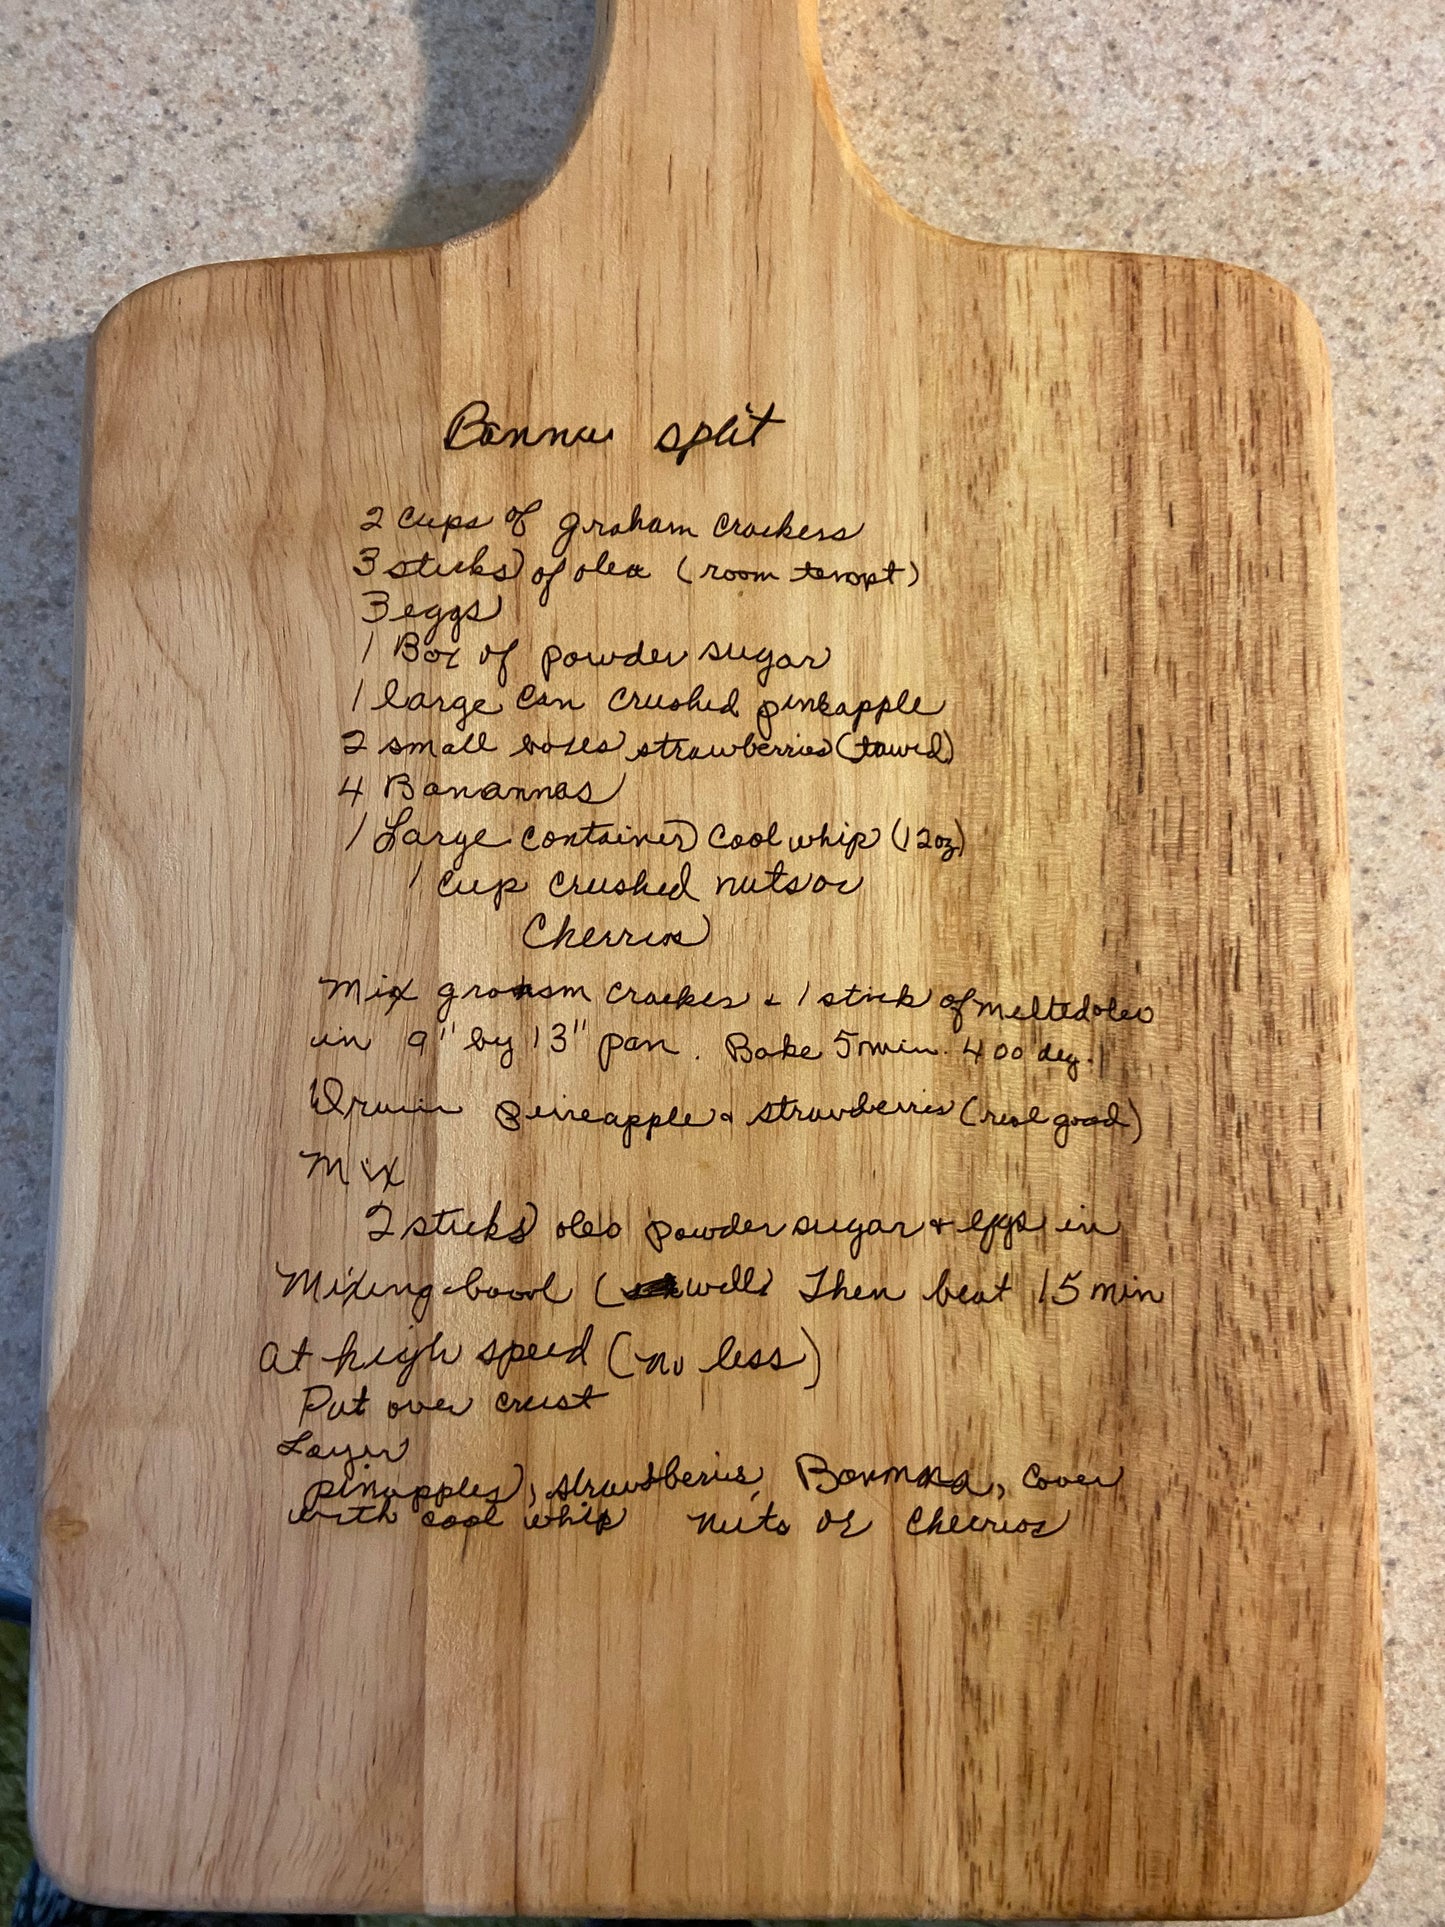 Banna split
2 cups of graham crackers
3 sticks of oleo (room tempt)
3 eggs
1 Box of powder sugar
1 large can crushed pineapple
2 small boxes strawberries
4 Banannas
1 Large container Cool whip (12oz)
1 cup crushed nuts or
Cherrios
Mix crackers & 1 stick of melted oleo
in 9" by 13" pan. Bake 5 min. 400 deg.
Drain pineapple & strawberries (real good)
Mix
2 sticks oleo powder sugar & eggs in
Mixing bowl ( well) Then beat 15 min
at high speed (no less)
Put over crust
Layer
pineapples, strawberries, Bananna, cover
with cool whip nuts or cheerios